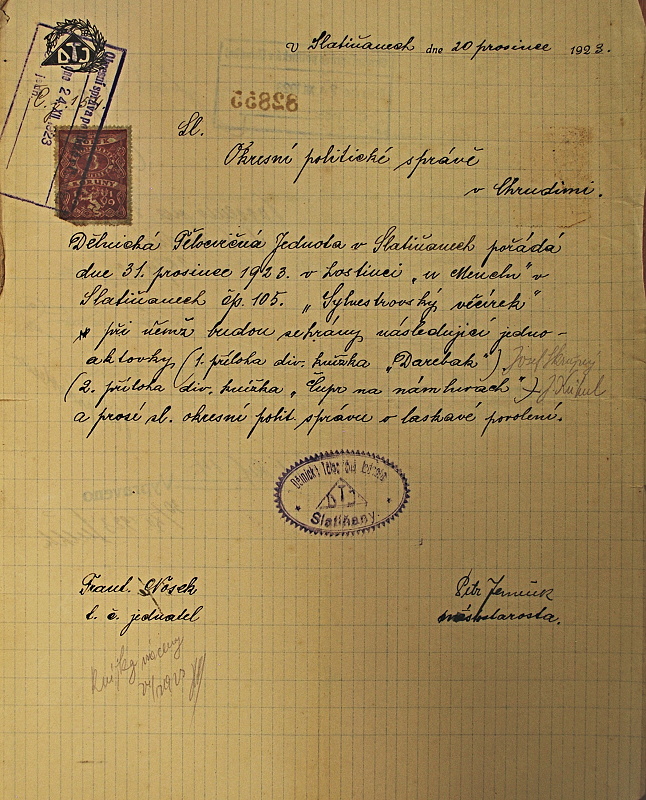 DTJ
v Slatiňanech dne 20 prosince 1923.
24. XII. 1923
32855
Sl.
Okresní politické správě
v Chrudimi.
Dělnická Tělocvičná Jednota v Slatiňanech pořádá
dne 31. prosince 1923. v hostinci „u Menclů" v
Slatiňanech čp. 105. „Sylvestrovský věčírek"
při němž budou sehrány následující jedno-
aktovky (1. příloha div. knížka „Darebak") Josef
(2. příloha div. knížka „Čupr na námluvách") J.
a prosí sl. okresní polit. správu o laskavé povolení.
DTJ
Slatiňany.
Frant. Nosek
t. č. jednatel
Petr
místostarosta.